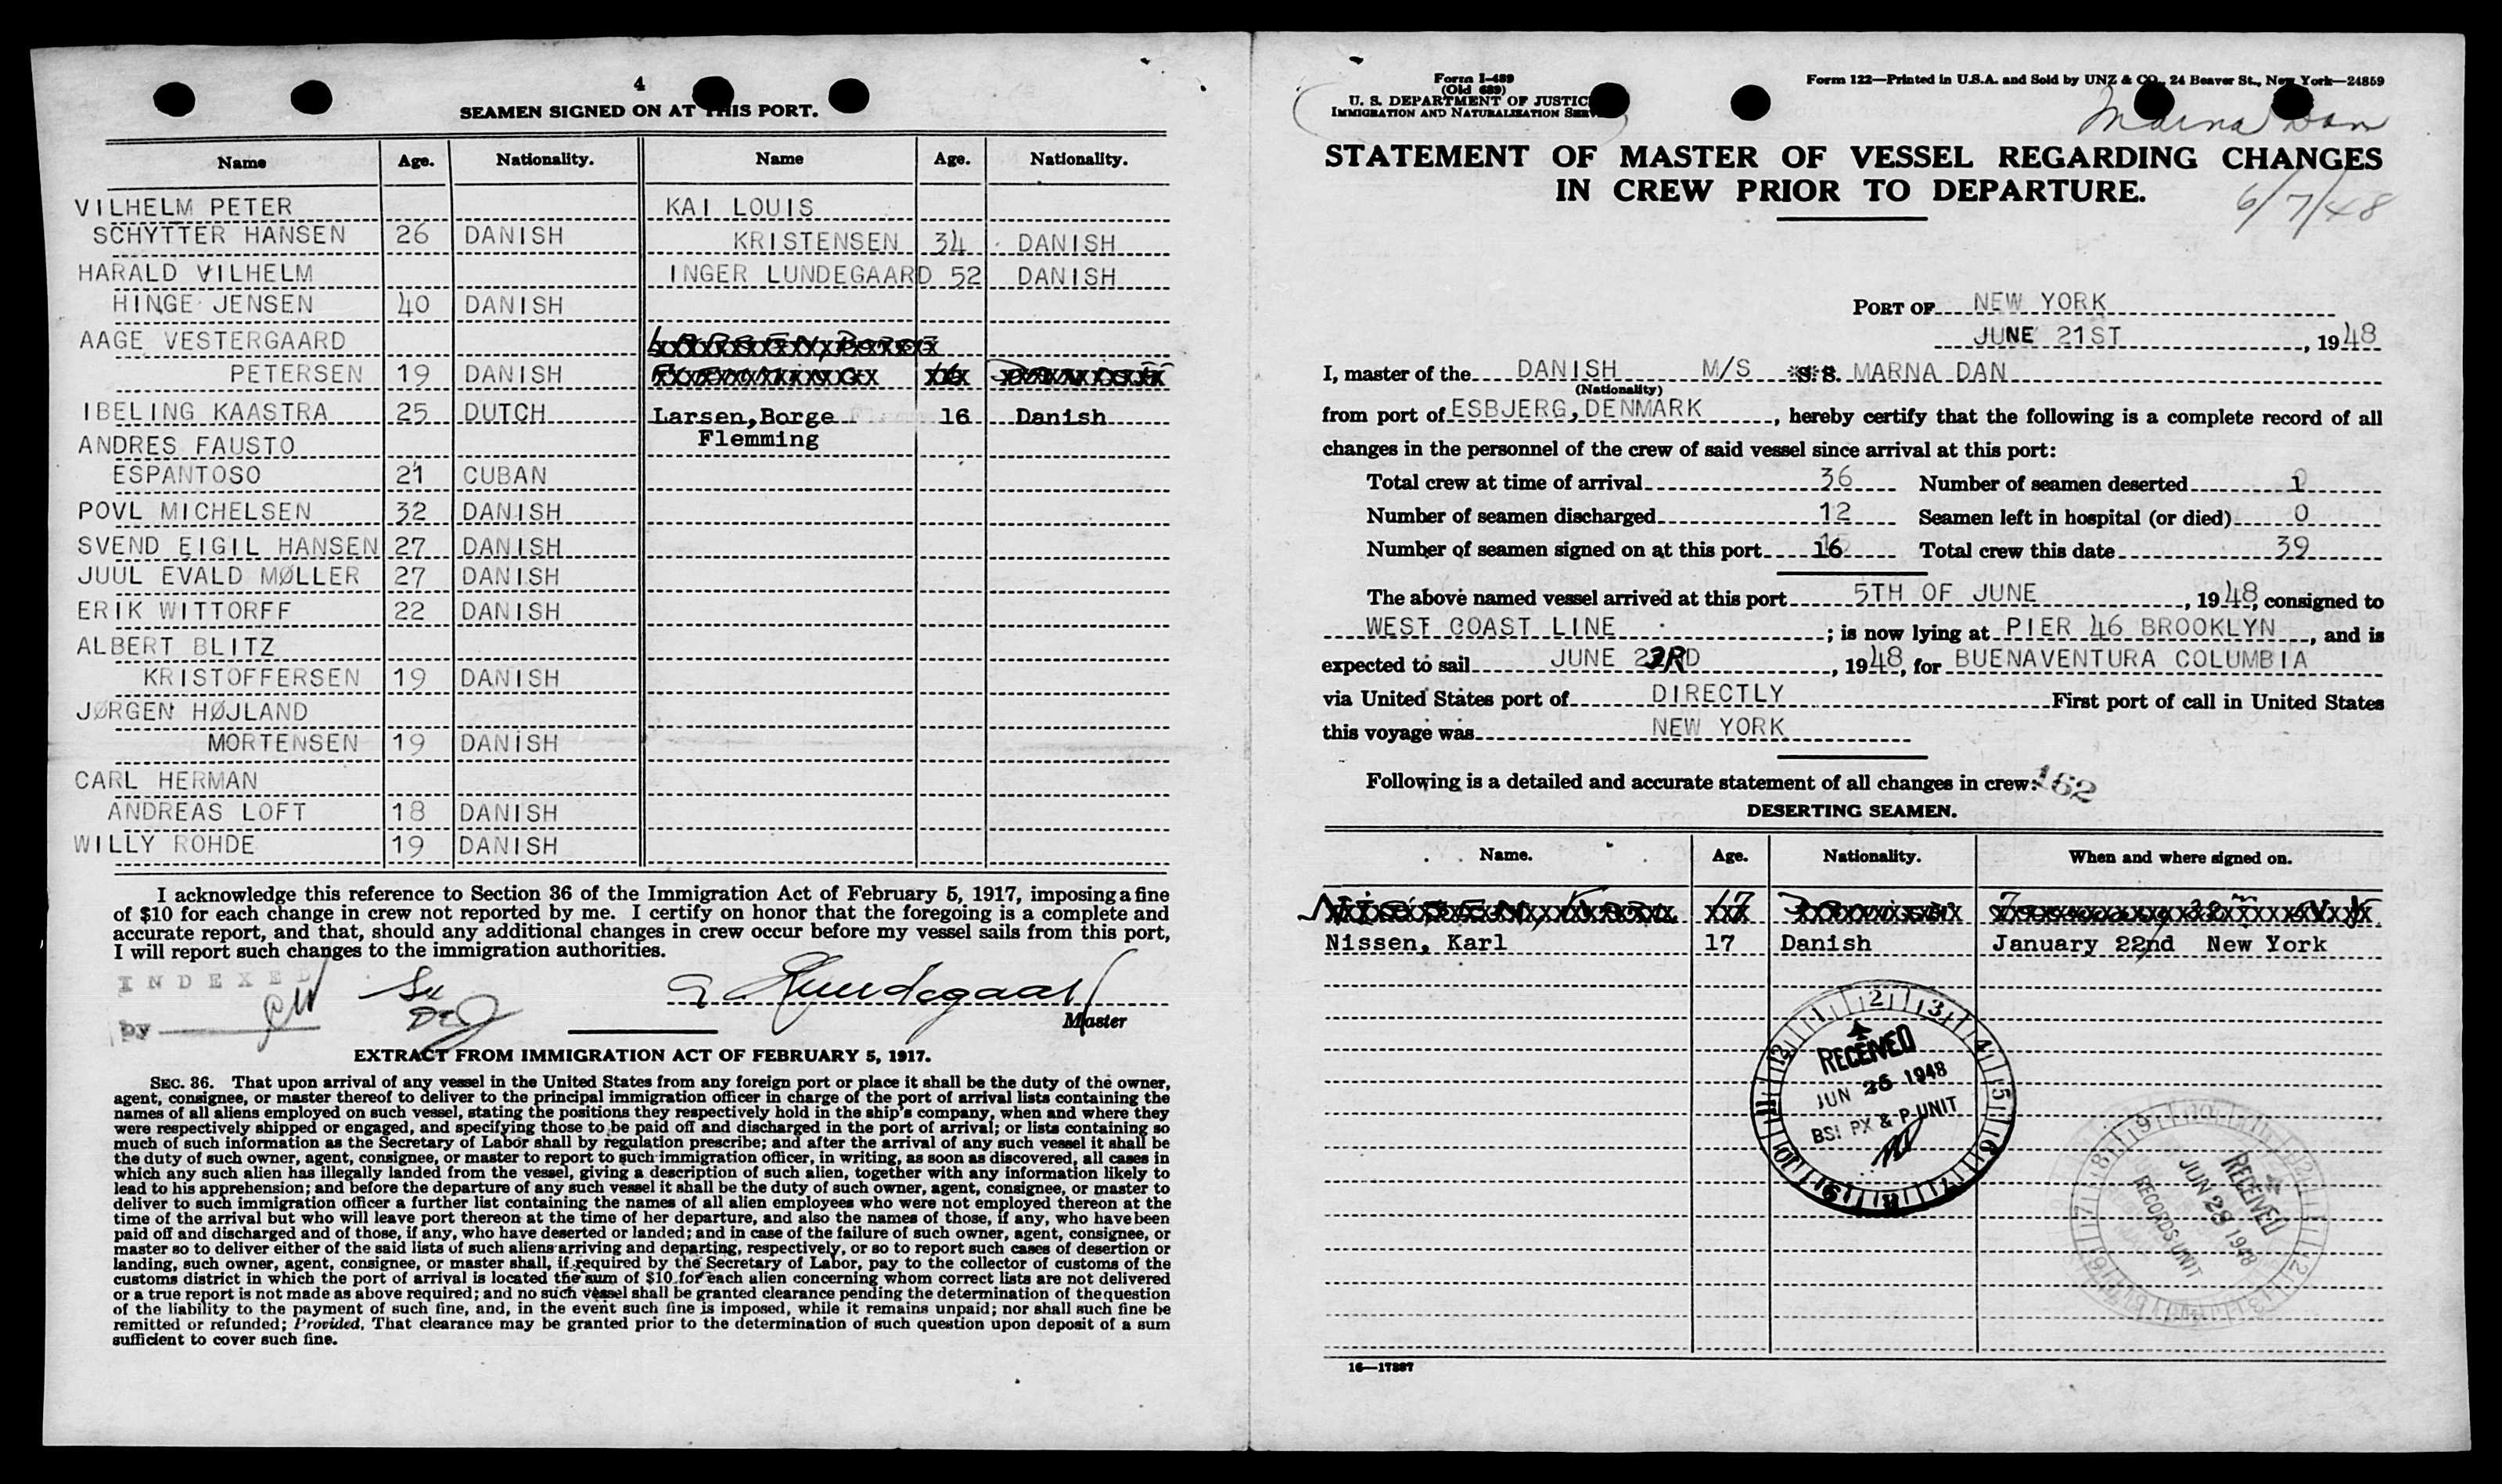 4
SEAMEN SIGNED ON AT THIS PORT.
Name Age. Nationality. Name Age. Nationality.
VILHELM PETER KAI LOUIS
SCHYTTER HANSEN 26 DANISH KRISTENSEN 34 DANISH
HARALD VILHELM INGER LUNDEGAARD 52 DANISH
HINGE JENSEN 40 DANISH
AAGE VESTERGAARD
PETERSEN 19 DANISH
IBELING KAASTRA 25 DUTCH Larsen, Borge 16 Danish
ANDRES FAUSTO Flemming
ESPANTOSO 21 CUBAN
POVL MICHELSEN 32 DANISH
SVEND EIGIL HANSEN 27 DANISH
JUUL EVALD MØLLER 27 DANISH
ERIK WITTORFF 22 DANISH
ALBERT BLITZ
KRISTOFFERSEN 19 DANISH
JØRGEN HØJLAND
MORTENSEN 19 DANISH
CARL HERMAN
ANDREAS LOFT 18 DANISH
WILLY ROHDE 19 DANISH
I acknowledge this reference to Section 36 of the Immigration Act of February 5, 1917, imposing a fine
of $10 for each change in crew not reported by me. I certify on honor that the foregoing is a complete and
accurate report, and that, should any additional changes in crew occur before my vessel sails from this port,
I will report such changes to the immigration authorities.
INDEXED
by
Master
EXTRACT FROM IMMIGRATION ACT OF FEBRUARY 5, 1917.
SEC. 36. That upon arrival of any vessel in the United States from any foreign port or place it shall be the duty of the owner,
agent, consignee, or master thereof to deliver to the principal immigration officer in charge of the port of arrival lists containing the
names of all aliens employed on such vessel, stating the positions they respectively hold in the ship's company, when and where they
were respectively shipped or engaged, and specifying those to be paid off and discharged in the port of arrival; or lists containing so
much of such information as the Secretary of Labor shall by regulation prescribe; and after the arrival of any such vessel it shall be
the duty of such owner, agent, consignee, or master to report to such immigration officer, in writing, as soon as discovered, all cases in
which any such alien has illegally landed from the vessel, giving a description of such alien, together with any information likely to
lead to his apprehension; and before the departure of any such vessel it shall be the duty of such owner, agent, consignee, or master to
deliver to such immigration officer a further list containing the names of all alien employees who were not employed thereon at the
time of the arrival but who will leave port thereon at the time of her departure, and also the names of those, if any, who have been
paid off and discharged and of those, if any, who have deserted or landed; and in case of the failure of such owner, agent, consignee, or
master so to deliver either of the said lists of such aliens arriving and departing, respectively, or so to report such cases of desertion or
landing, such owner, agent, consignee, or master shall, if required by the Secretary of Labor, pay to the collector of customs of the
customs district in which the port of arrival is located the sum of $10 for each alien concerning whom correct lists are not delivered
or a true report is not made as above required; and no such vessel shall be granted clearance pending the determination of the question
of the liability to the payment of such fine, and, in the event such fine is imposed, while it remains unpaid; nor shall such fine be
remitted or refunded; Provided, That clearance may be granted prior to the determination of such question upon deposit of a sum
sufficient to cover such fine.
Form I-489
(Old 689)
U. S. DEPARTMENT OF JUSTICE
IMMIGRATION AND NATURALIZATION SERV
Form 122—Printed in U.S.A. and Sold by UNZ & CO., 24 Beaver St., New York—24859
Marna Dan
STATEMENT OF MASTER OF VESSEL REGARDING CHANGES
IN CREW PRIOR TO DEPARTURE.
6/7/48
PORT OF NEW YORK
JUNE 21ST, 1948
I, master of the DANISH M/S S. S. MARNA DAN
(Nationality)
from port of ESBJERG, DENMARK, hereby certify that the following is a complete record of all
changes in the personnel of the crew of said vessel since arrival at this port:
Total crew at time of arrival 36 Number of seamen deserted 1
Number of seamen discharged 12 Seamen left in hospital (or died) 0
Number of seamen signed on at this port 16 Total crew this date 39
The above named vessel arrived at this port 5TH OF JUNE, 1948, consigned to
WEST COAST LINE; is now lying at PIER 46 BROOKLYN, and is
expected to sail JUNE 23RD, 1948, for BUENAVENTURA COLUMBIA
via United States port of DIRECTLY First port of call in United States
this voyage was NEW YORK
Following is a detailed and accurate statement of all changes in crew:
162
DESERTING SEAMEN.
Name. Age. Nationality. When and where signed on.
Nissen, Karl 17 Danish January 22nd New York
RECEIVED
JUN 26 1948
BSI PX & P UNIT
RECEIVED
JUN 28 1948
RECORDS UNIT
16—17887